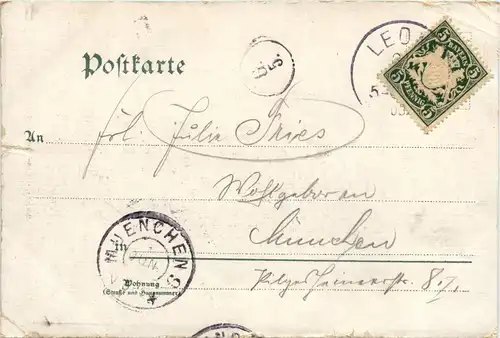 Postkarte
LEO
5
BAYERN
5 5
PFENNIG
5
An Frl. Julie Fries
Wohlgeboren
in München
MUENCHEN
Wohnung
(Straße und Hausnummer)
8./I.